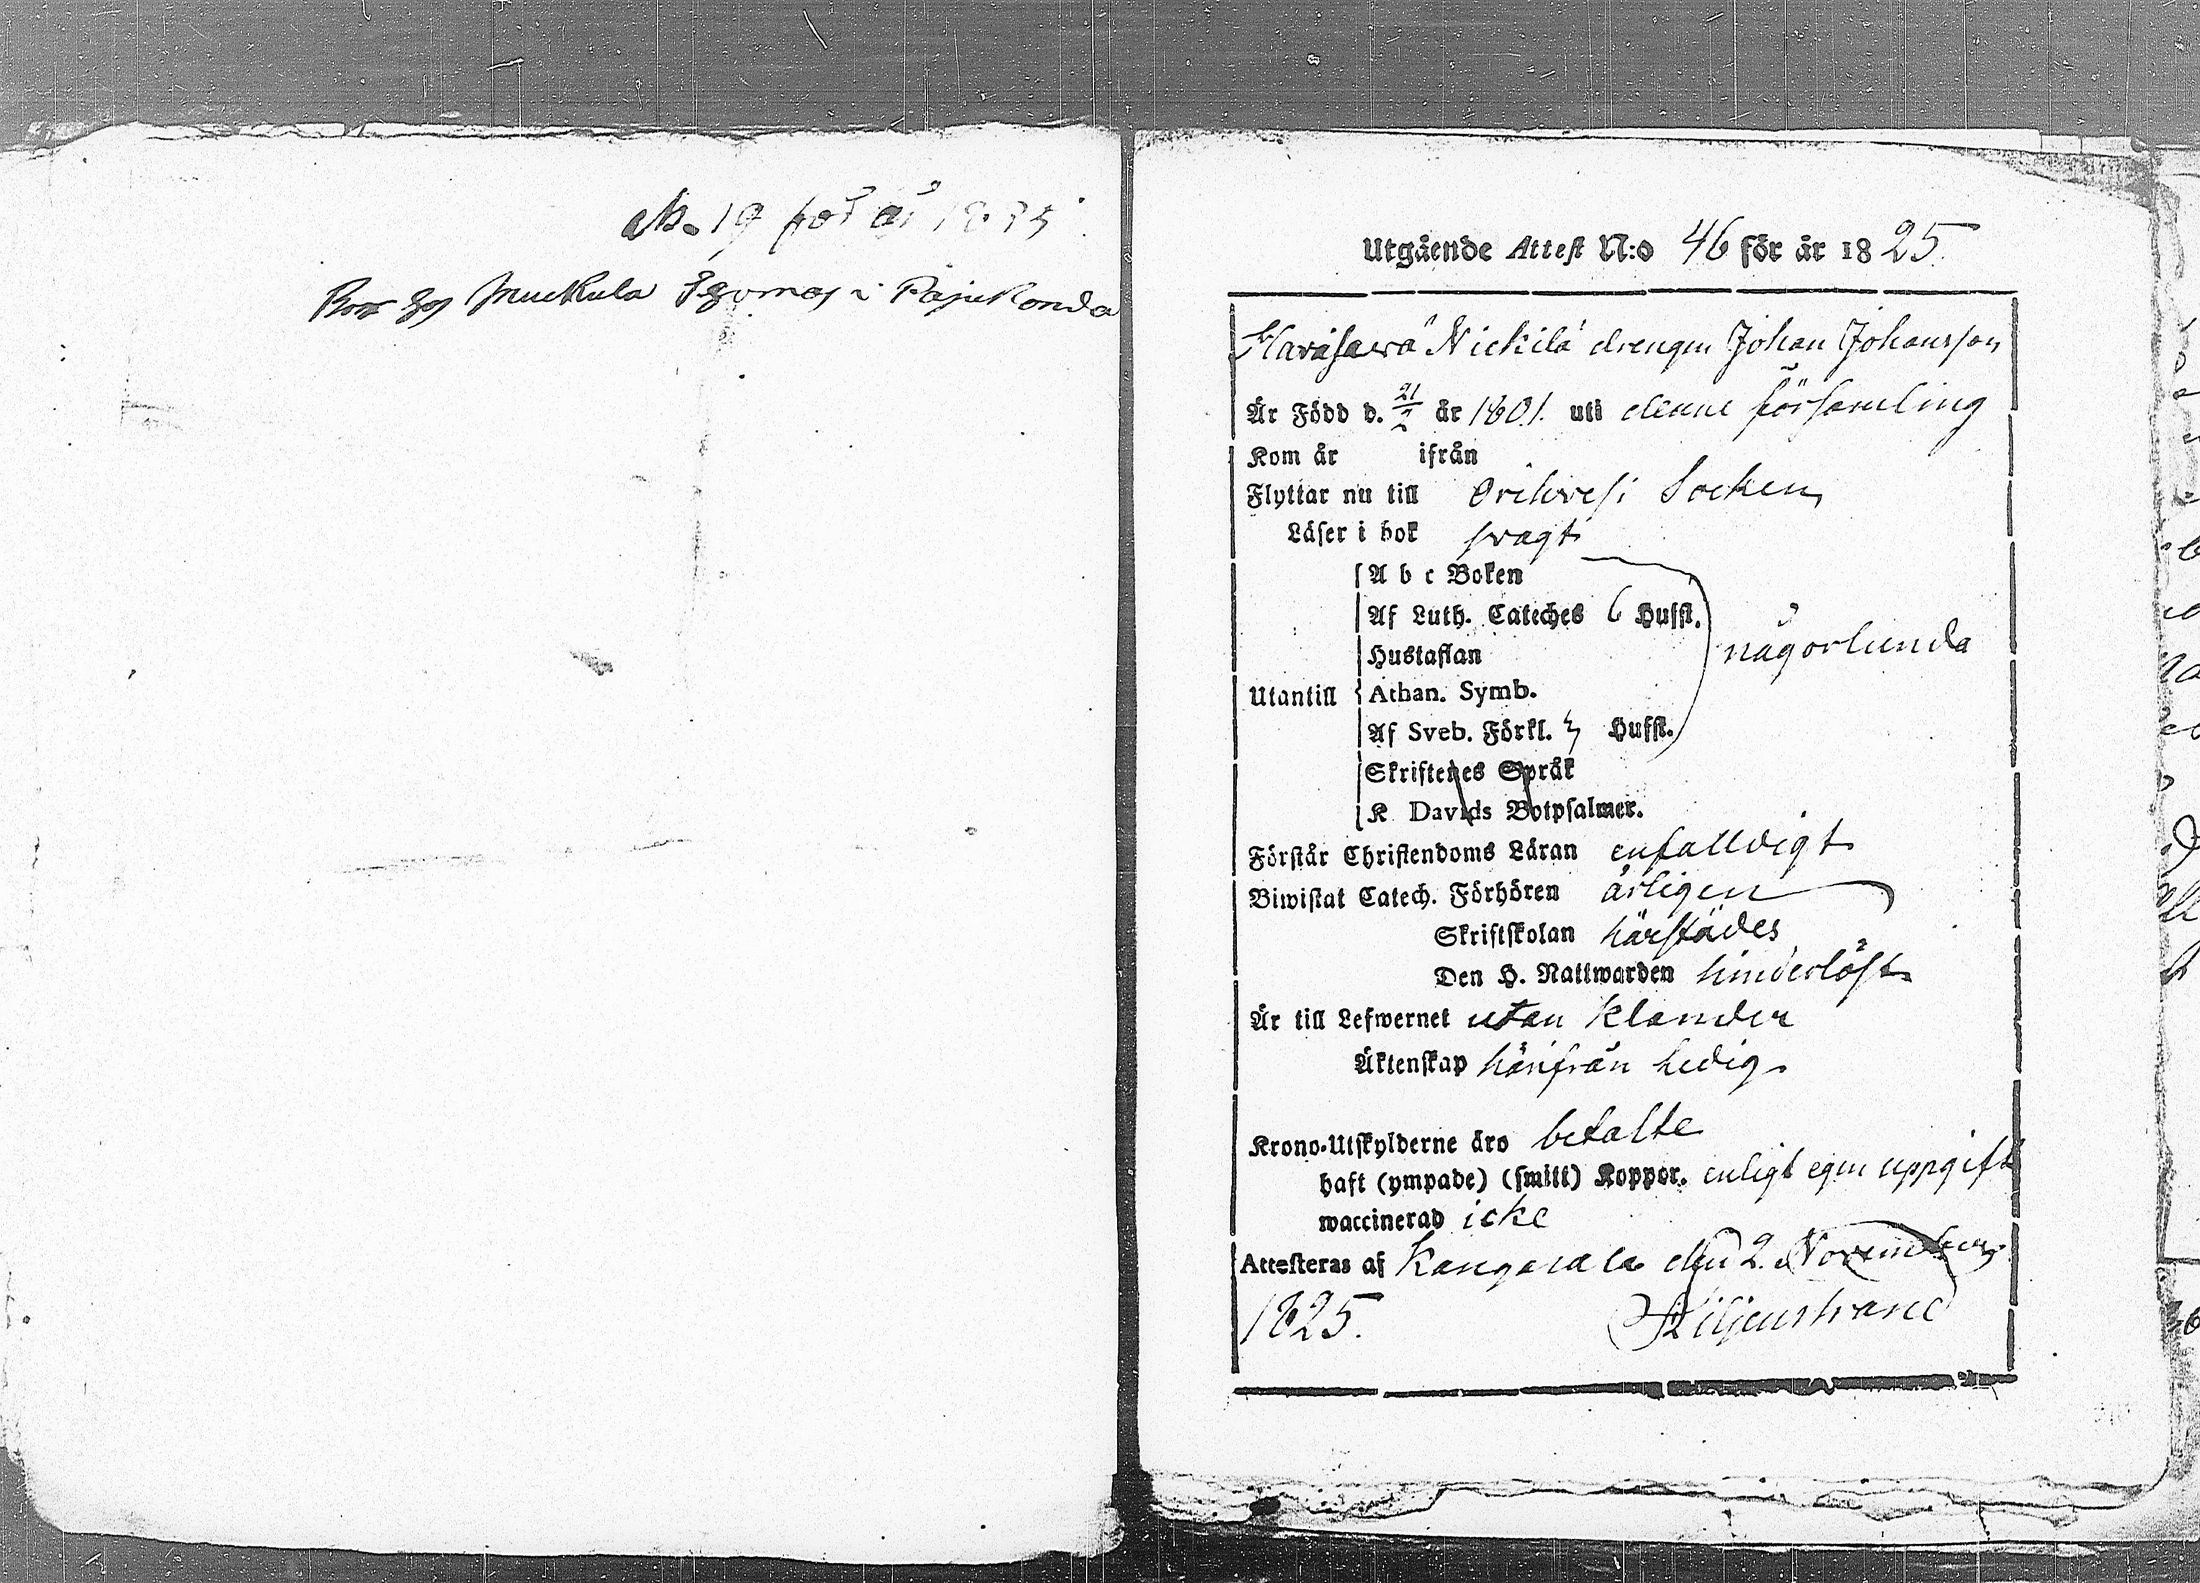 No 19 för år 1835
Muckula i Pajukonda
Utgående Attest N:o 46 för år 1825.
Havisawa Nickilä drengen Johan Johansson
Är Född d. 21/2 år 1801. uti denne församling
Kom år ifrån
Flyttar nu till Orihvesi Socken
Läser i bok svagt
A b c Boken
Af Luth. Cateches 6 Husst.
Hustaflan
någorlunda
Utantill Athan. Symb.
Af Sveb. Förkl. 3 Husst.
Skriftenes Språk
K Davids Botpsalmer.
Förstår Christendoms Läran enfalldigt
Biwistat Catech. Förhören årligen
Skriftskolan härstädes
Den H. Nattwarden hinderlöst
Är till Lefwernet utan klander
Äktenskap härifrån ledig.
Krono-Utskylderne äro betalte
haft (ympade) (smitt) Koppor. enligt egen uppgift
waccinerad icke
Attesteras af Kangasala den 2. November
1825. Liljenstrand